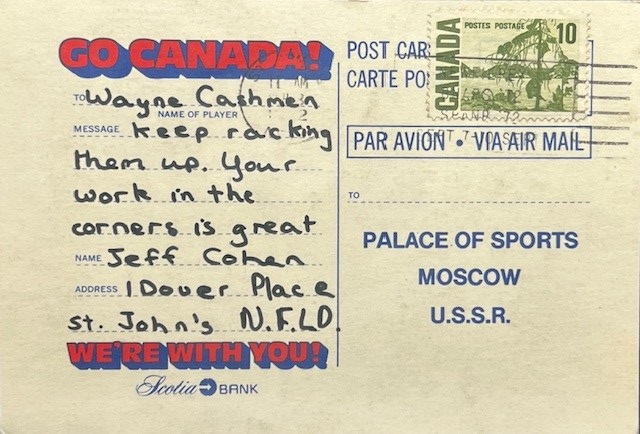 GO CANADA!
TO Wayne Cashmen
NAME OF PLAYER
MESSAGE Keep racking
them up. Your
work in the
corners is great
NAME Jeff Cohen
ADDRESS 1 Dover Place
St. John's N.F.L.D.
WE'RE WITH YOU!
Scotia BANK
POST CAR
CARTE PO
CANADA
POSTES POSTAGE
10
PAR AVION • VIA AIR MAIL
TO
PALACE OF SPORTS
MOSCOW
U.S.S.R.